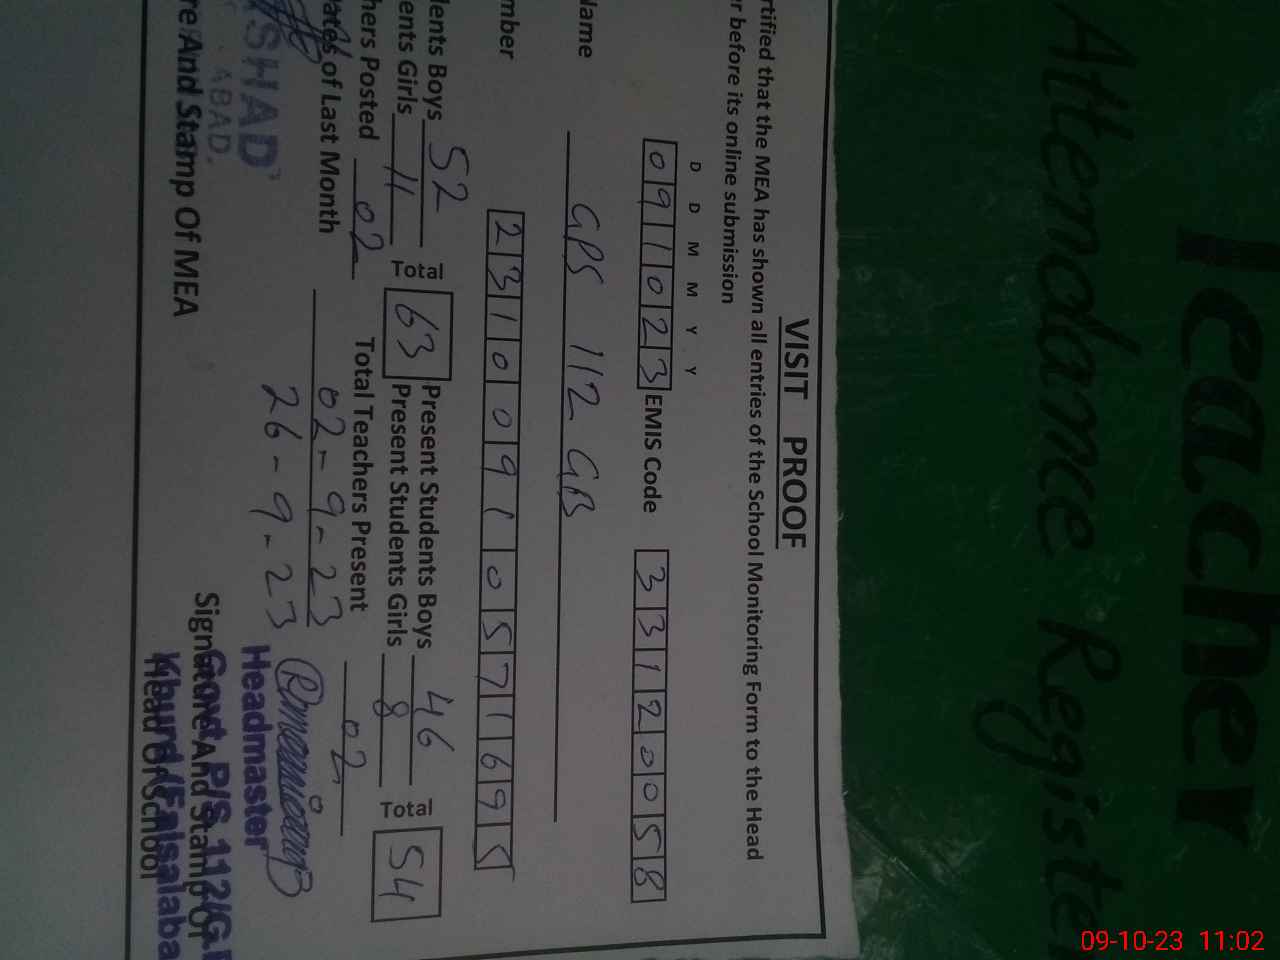 Teacher
Attendance Register
VISIT PROOF
rtified that the MEA has shown all entries of the School Monitoring Form to the Head
r before its online submission
D D M M Y Y
091023 EMIS Code 33120058
Name GPS 112 GB
mber 23100910571695
dents Boys 52 Total 63 Present Students Boys 46 Total 54
ents Girls 11 Present Students Girls 8
hers Posted 02 Total Teachers Present 02
ates of Last Month 02-9-23
26-9-23
SHAD
ABAD.
re And Stamp Of MEA
Headmaster
Govt. P/S 112/G.
Khurd (Faisalaba
Signature And Stamp Of
Head Of School
09-10-23 11:02